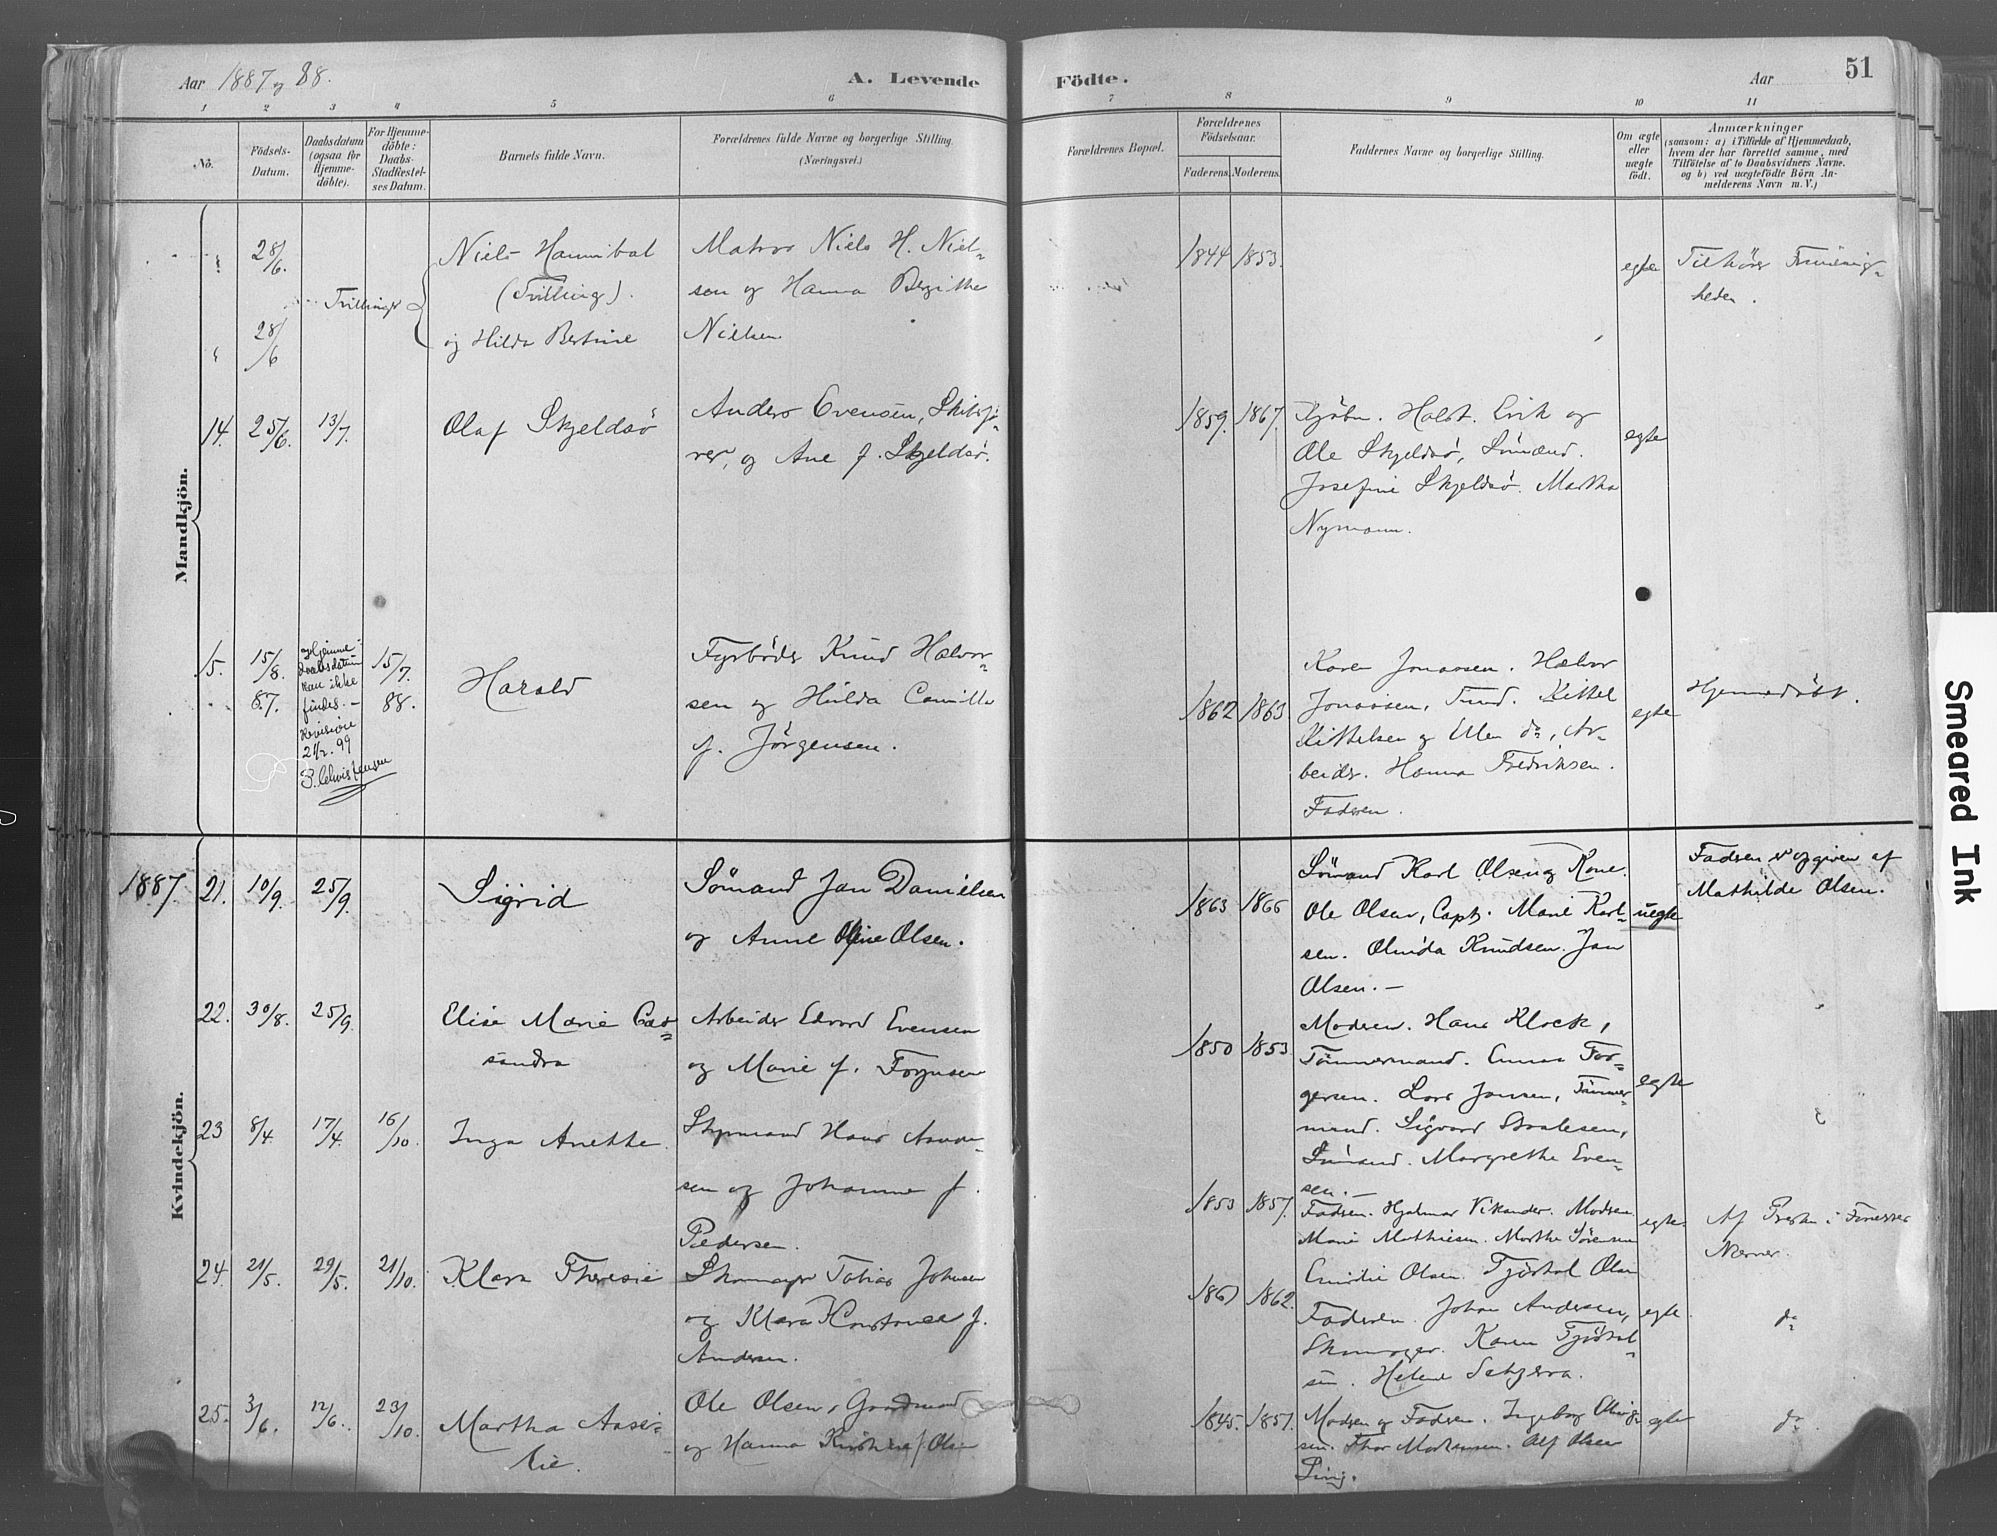 Aar 1887 og 88.
A. Levende
Födte.
Aar
51
1 2 3 4 5 6 7 8 9 10 11
No.
Födsels-
Datum.
Daabsdatum
(ogsaa for
Hjemme-
döbte).
For Hjemme-
döbte:
Daabs-
Stadfæstel-
ses Datum.
Barnets fulde Navn.
Forældrenes fulde Navne og borgerlige Stilling.
(Næringsvei.)
Forældrenes Bopæl.
Forældrenes
Födselsaar.
Faderens.
Moderens.
Faddernes Navne og borgerlige Stilling.
Om ægte
eller
uægte
födt.
Anmærkninger
(saasom: a) i Tilfælde af Hjemmedaab,
hvem der har forrettet samme, med
Tilföielse af to Daabsvidners Navne.
og b) ved uægtefödte Börn An-
melderens Navn m. V.)
Mandkjön.
28/6.
28/6
Tvillinger
Niels Hannibal
(Tvilling).
og Hilda Bertine
Matros Niels H. Niel-
sen og Hanna Bergitte
Nielsen
1844 1853.
egte
Tilhörer Frimenig-
heden.
14. 25/6. 13/7.
Olaf Skjeldsö
Anders Evensen, Skibsfö-
rer, og Ane f. Skjeldsö.
1859. 1867.
Kjöbm. Holst. Erik og
Ole Skjeldsö, Sömænd.
Josefine Skjeldsö. Martha
Nymann.
egte
15. 15/8. 87.
Hjemme-
daabsdatum
kan ikke
findes. —
Revisione
21/2. 99
P. Christensen
15/7. 88.
Harald
Fyrböder Knud Halvor-
sen og Hulda Camilla
f. Jörgensen.
1862 1863
Karen Jonassen. Halvor
Jonassen, Tmd. Kittel
Kittelsen og Elen do, Ar-
beider. Hanna Fredriksen.
Faderen.
egte
Hjemmedöbt.
Kvindekjön.
1887. 21. 10/9. 25/9.
Sigrid
Sömand Jan Danielsen
og Anne Oline Olsen.
1863 1866
Sömand Karl Olsen og Kone.
Ole Olsen, Capt. Marie Karl-
sen. Olivida Knudsen. Jan
Olsen. —
uegte
Faderen er opgiven af
Mathilde Olsen.
22. 30/8. 25/9.
Elise Marie Cas-
sandra
Arbeider Edvard Evensen
og Marie f. Foynsen
1850 1853.
Moderen. Hans Klock,
Tömmermand. Emma Tor-
gersen. Lars Jansen, Tömmer-
mand. Sigvard Staalesen,
Sömand. Margrethe Even-
sen. —
egte
23 8/4. 17/4. 16/10.
Inga Anette.
Styrmand Hans
sen og Johanne f.
Pedersen.
1853 1857.
Faderen. Hjalmar Vikander. Moderen
Marie Mathiesen. Marthe Sörensen
egte
Af Presten i
Nærnes.
24. 21/5. 29/5. 21/10.
Klara Theresie
Skomager Tobias Johnsen
og Klara Konstance f.
Andersen.
1861 1862.
Emilie Olsen. Tjöstol Olsen
Faderen. Johan Andersen,
Skomager. Karen Tjöstol-
sen. Helene
egte.
do
25. 3/6. 12/6. 23/10.
Martha Aase-
lie.
Ole Olsen, Gaardmand
og Hanna Kirstine f. Olsen
1845. 1851.
Moderen og Faderen. Ingeborg
sen. Thor Mortensen. Alf Olsen
Ling.
egte
do
Smeared Ink